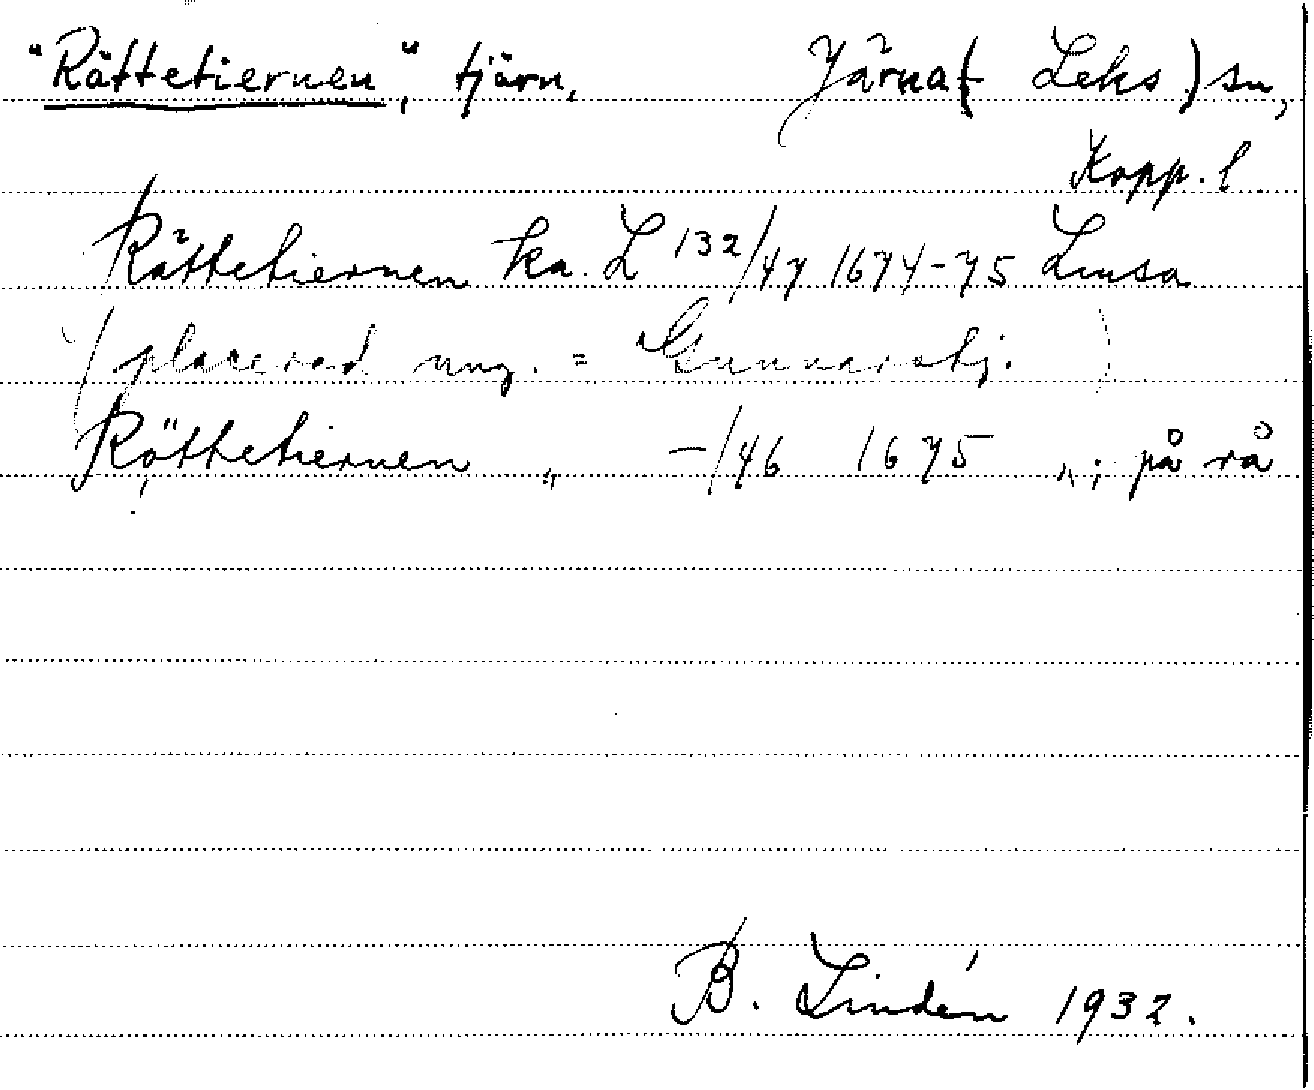 "Rättetiernen", tjärn, Järna( Leks) sn,
Kopp. l
Rättetiernen ka. L 132/47 1674-75 Lmsa
(placerad ung. = Gunnarstj. )
Röttetiernen „ -/46 1675 „; på rå
B. Lindén 1932.